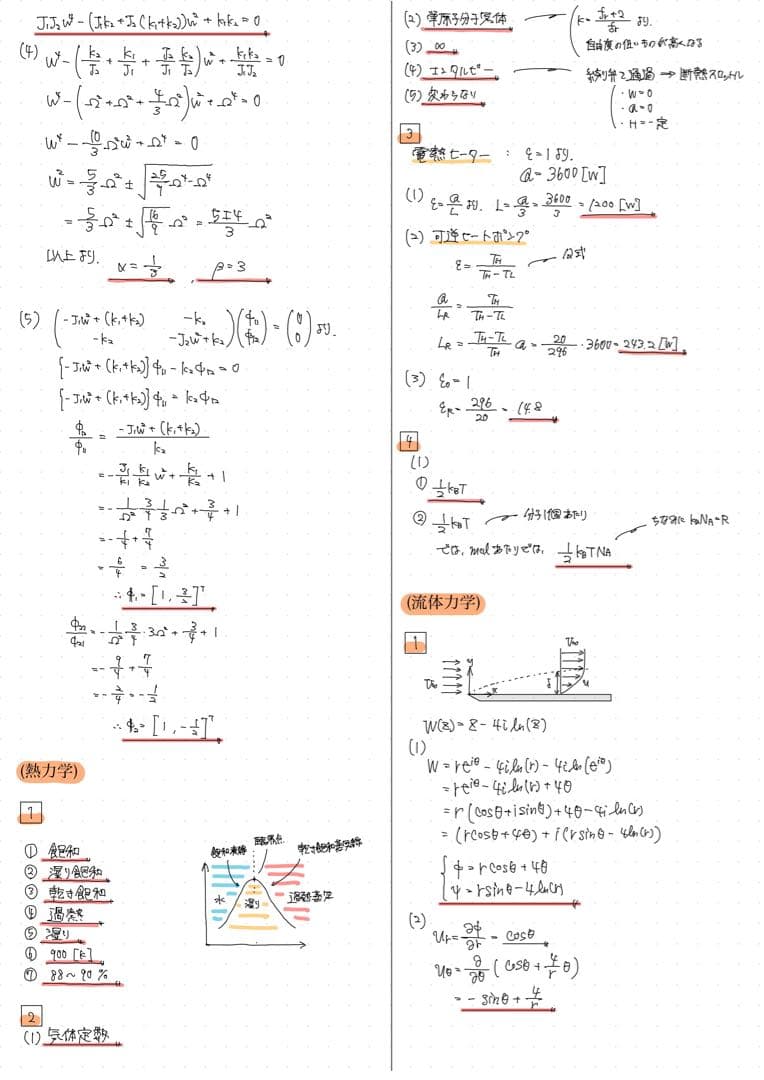 J₁J₂ω⁴ − (J₁k₂ + J₂(k₁+k₂))ω² + k₁k₂ = 0
(4) ω⁴ − (k₂/J₂ + k₁/J₁ + J₂/J₁ k₂/J₂)ω² + k₁k₂/J₁J₂ = 0
ω⁴ − (Ω² + Ω² + 4/3 Ω²)ω² + Ω⁴ = 0
ω⁴ − 10/3 Ω²ω² + Ω⁴ = 0
ω² = 5/3 Ω² ± √(25/9 Ω⁴ − Ω⁴)
= 5/3 Ω² ± √(16/9) Ω² = (5±4)/3 Ω²
以上より, α = 1/3 , β = 3
(5) (−J₁ω² + (k₁+k₂) −k₂
−k₂ −J₂ω² + k₂)(φ₁₁
φ₁₂) = (0
0) より.
{−J₁ω² + (k₁+k₂)}φ₁₁ − k₂φ₁₂ = 0
{−J₁ω² + (k₁+k₂)}φ₁₁ = k₂φ₁₂
φ₁₂/φ₁₁ = (−J₁ω² + (k₁+k₂))/k₂
= −J₁/k₁ k₁/k₂ ω² + k₁/k₂ + 1
= −1/Ω² 3/4 1/3 Ω² + 3/4 + 1
= −1/4 + 7/4
= 6/4 = 3/2
∴ φ₁ = [1, 3/2]ᵀ
φ₂₂/φ₂₁ = −1/Ω² 3/4 · 3Ω² + 3/4 + 1
= −9/4 + 7/4
= −2/4 = −1/2
∴ φ₂ = [1, −1/2]ᵀ
(熱力学)
1
① 飽和
② 湿り飽和
③ 乾き飽和
④ 過熱
⑤ 湿り
⑥ 900 [K]
⑦ 88～90 %
飽和液線
臨界点
乾き飽和蒸気線
水
湿り
過熱蒸気
2
(1) 気体定数
(2) 単原子分子気体
κ = (fr+2)/fr より.
自由度の低いものが高くなる
(3) ∞
(4) エンタルピー
絞り弁を通過 ⇒ 断熱スロットル
・W=0
・Q=0
・H=一定
(5) 変わらない
3
電熱ヒーター : ε=1より.
Q = 3600 [W]
(1) ε = Q/L より. L = Q/3 = 3600/3 = 1200 [W]
(2) 可逆ヒートポンプ
ε = TH/(TH−TL) 公式
Q/LR = TH/(TH−TL)
LR = (TH−TL)/TH Q = 20/296 · 3600 = 243.2 [W]
(3) ε₀ = 1
εR = 296/20 = 14.8
4
(1)
① 1/2 kBT
② 1/2 kBT 分子1個あたり
では, molあたりでは, 1/2 kBTNA
ちなみに kBNA=R
(流体力学)
1
U∞
y
x
U∞
δ
u
W(z) = z − 4i ln(z)
(1)
W = re^{iθ} − 4i ln(r) − 4i ln(e^{iθ})
= re^{iθ} − 4i ln(r) + 4θ
= r(cosθ + i sinθ) + 4θ − 4i ln(r)
= (rcosθ + 4θ) + i(rsinθ − 4ln(r))
{φ = rcosθ + 4θ
ψ = rsinθ − 4ln(r)
(2)
ur = ∂φ/∂r = cosθ
uθ = ∂/∂θ (cosθ + 4/r θ)
= −sinθ + 4/r